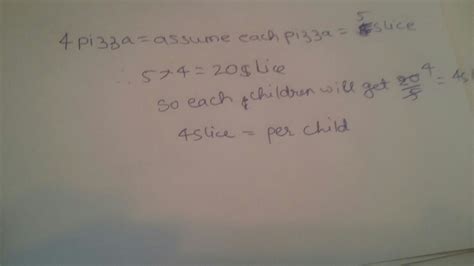 4 pizza = assume each pizza = 5 slice
∴ 5 × 4 = 20 slice
So each children will get 20/5 4 = 4s
4 slice = per child